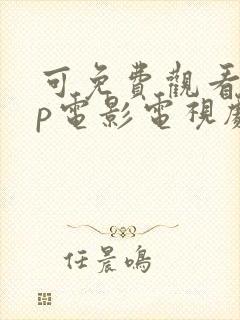 可免費觀看
p電影電視劇
任晨鳴